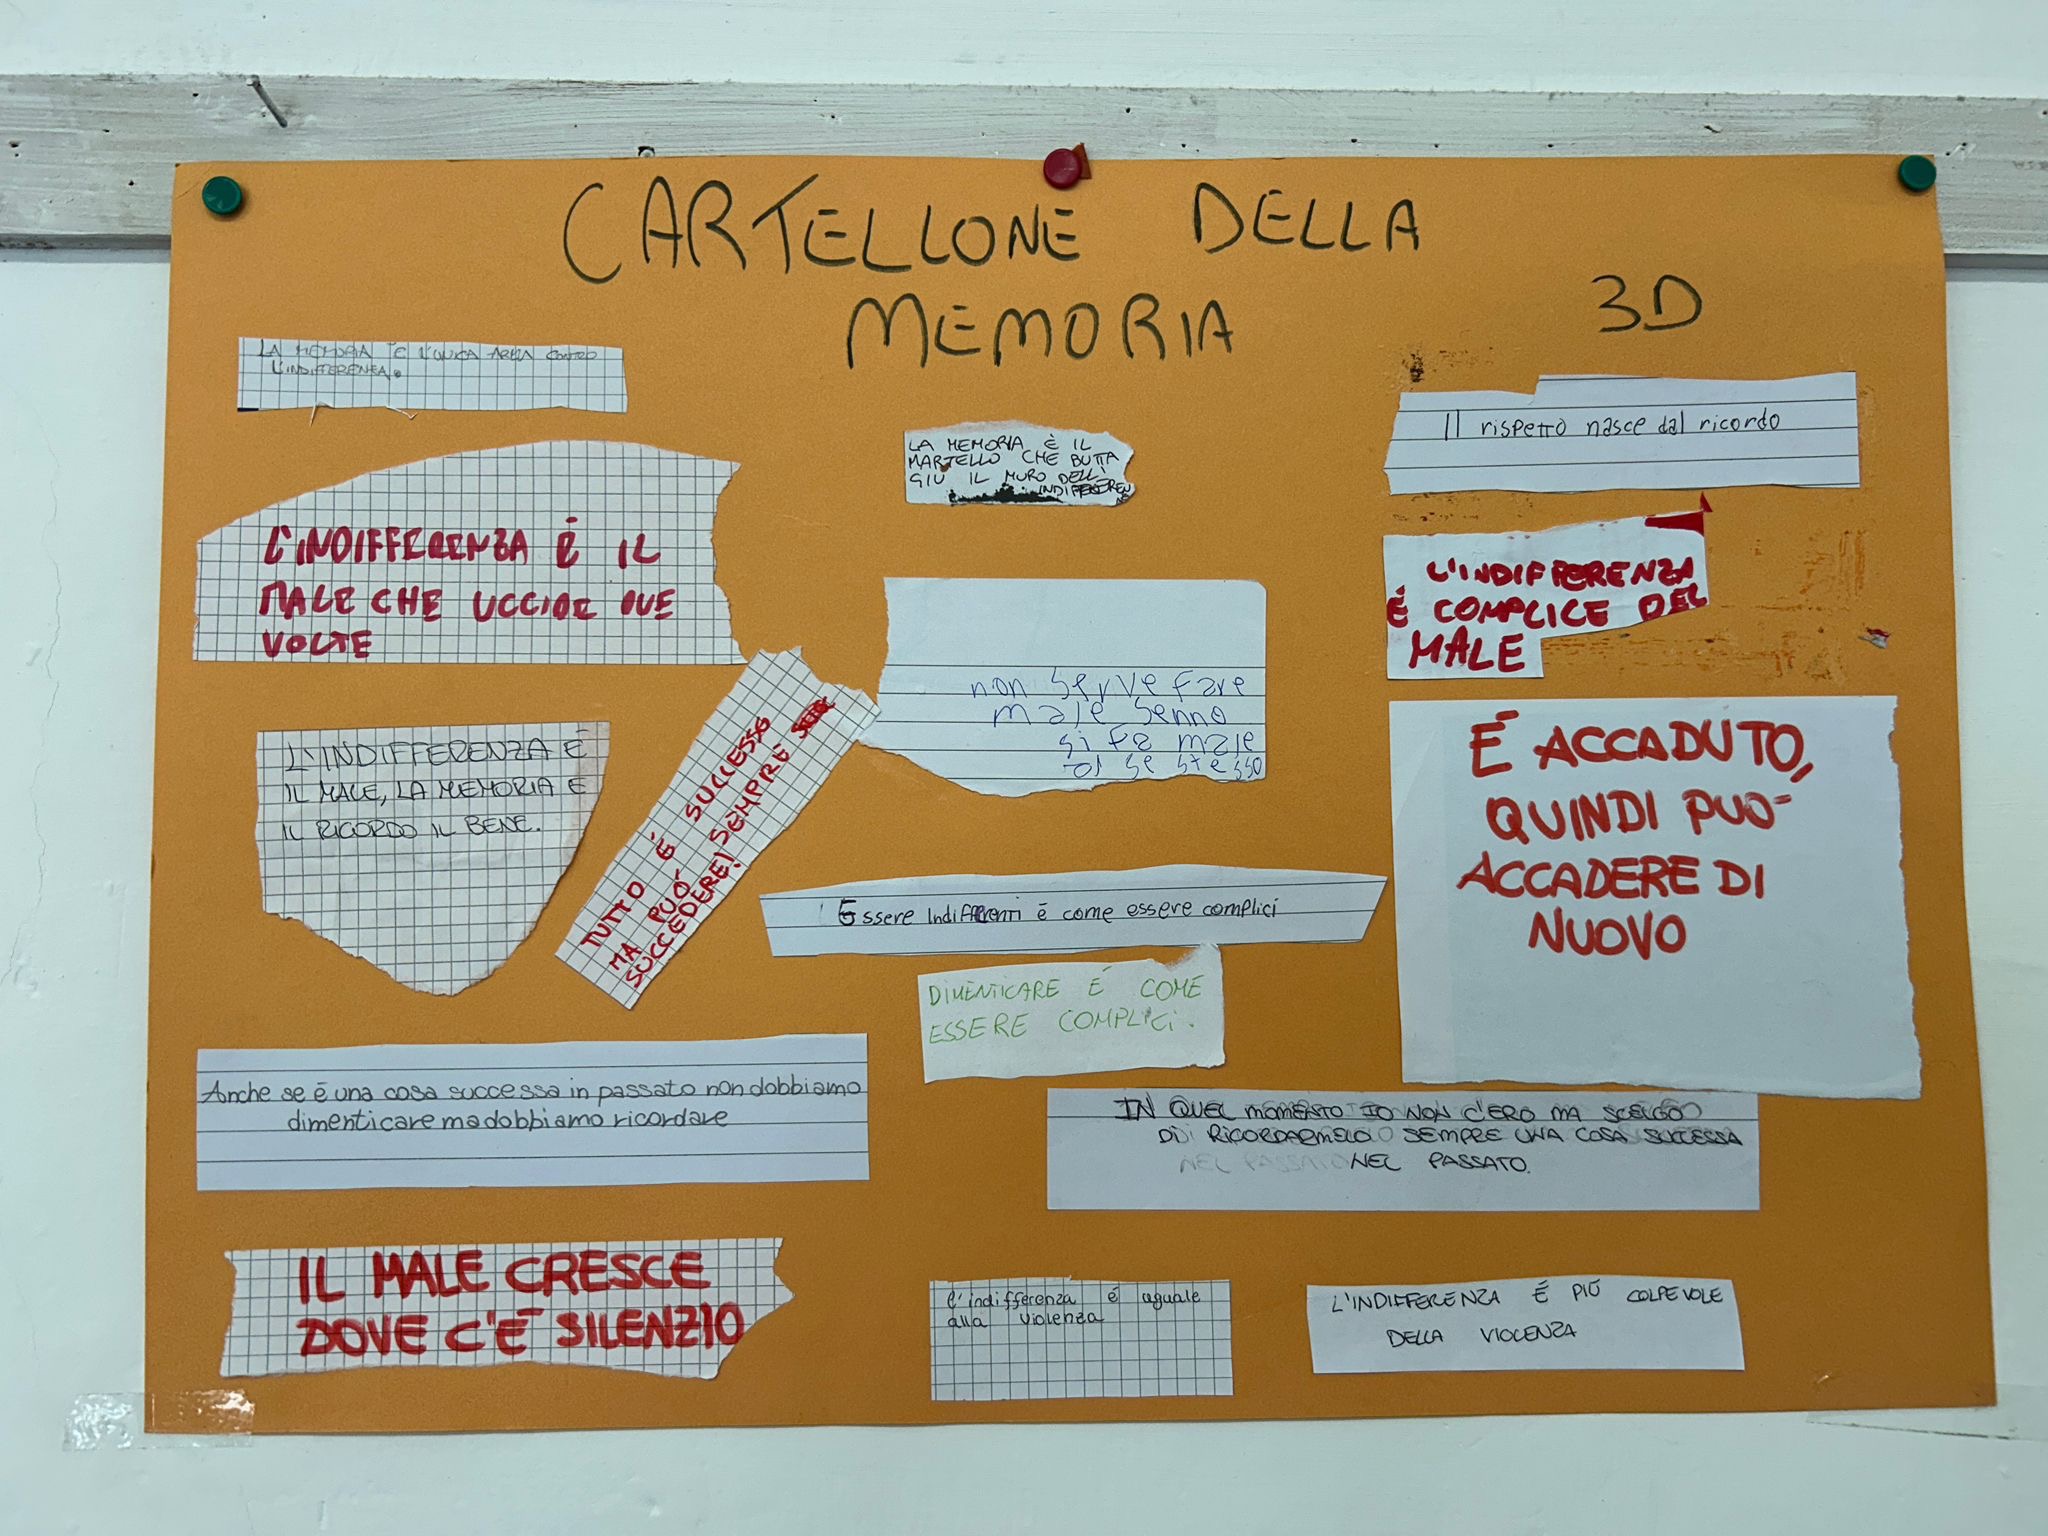 CARTELLONE DELLA
MEMORIA
3D
LA MEMORIA È L'UNICA ARMA CONTRO
L'INDIFFERENZA.
L'INDIFFERENZA È IL
MALE CHE UCCIDE DUE
VOLTE
L'INDIFFERENZA É
IL MALE, LA MEMORIA E
IL RICORDO IL BENE.
TUTTO É SUCCESSO
MA PUÓ SEMPRE
SUCCEDERE!
LA MEMORIA È IL
MARTELLO CHE BUTTA
GIU IL MURO DELL'
INDIFFEREN
non serve fare
male senno
si fa male
a se stesso
Essere Indifferenti é come essere complici
DIMENTICARE É COME
ESSERE COMPLICI.
Il rispetto nasce dal ricordo
L'INDIFFERENZA
É COMPLICE DEL
MALE
É ACCADUTO,
QUINDI PUO'
ACCADERE DI
NUOVO
Anche se é una cosa successa in passato non dobbiamo
dimenticare ma dobbiamo ricordare
IN QUEL MOMENTO IO NON C'ERO MA SCELGO
DI RICORDARMELO SEMPRE UNA COSA SUCCESSA
NEL PASSATO.
IL MALE CRESCE
DOVE C'É SILENZIO
l'indifferenza é uguale
alla violenza
L'INDIFFERENZA É PIÚ COLPEVOLE
DELLA VIOLENZA